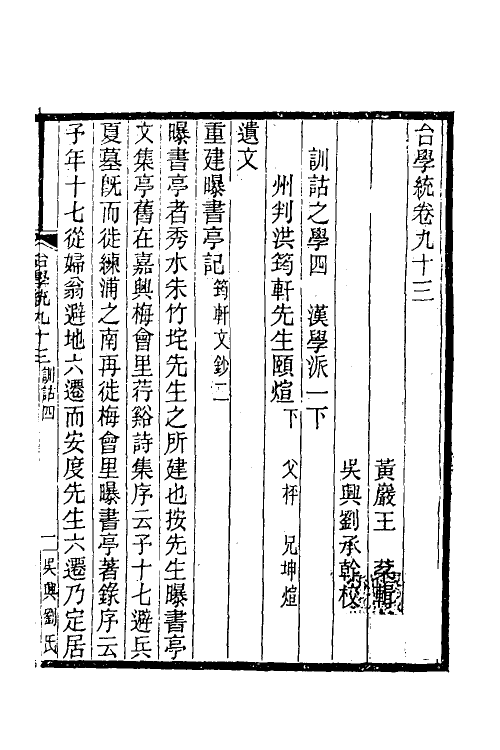 台學統卷九十三
黃巖王 棻輯
吳興劉承幹校
訓詁之學四 漢學派一下
州判洪筠軒先生頤煊下 父枰 兄坤煊
遺文
重建曝書亭記筠軒文鈔二
曝書亭者秀水朱竹垞先生之所建也按先生曝書亭
文集亭舊在嘉興梅會里荇谿詩集序云予十七避兵
夏墓旣而徙練浦之南再徙梅會里曝書亭著錄序云
子年十七從婦翁避地六遷而安度先生六遷乃定居
台學統九十三 訓詁四 一 吳興劉氏